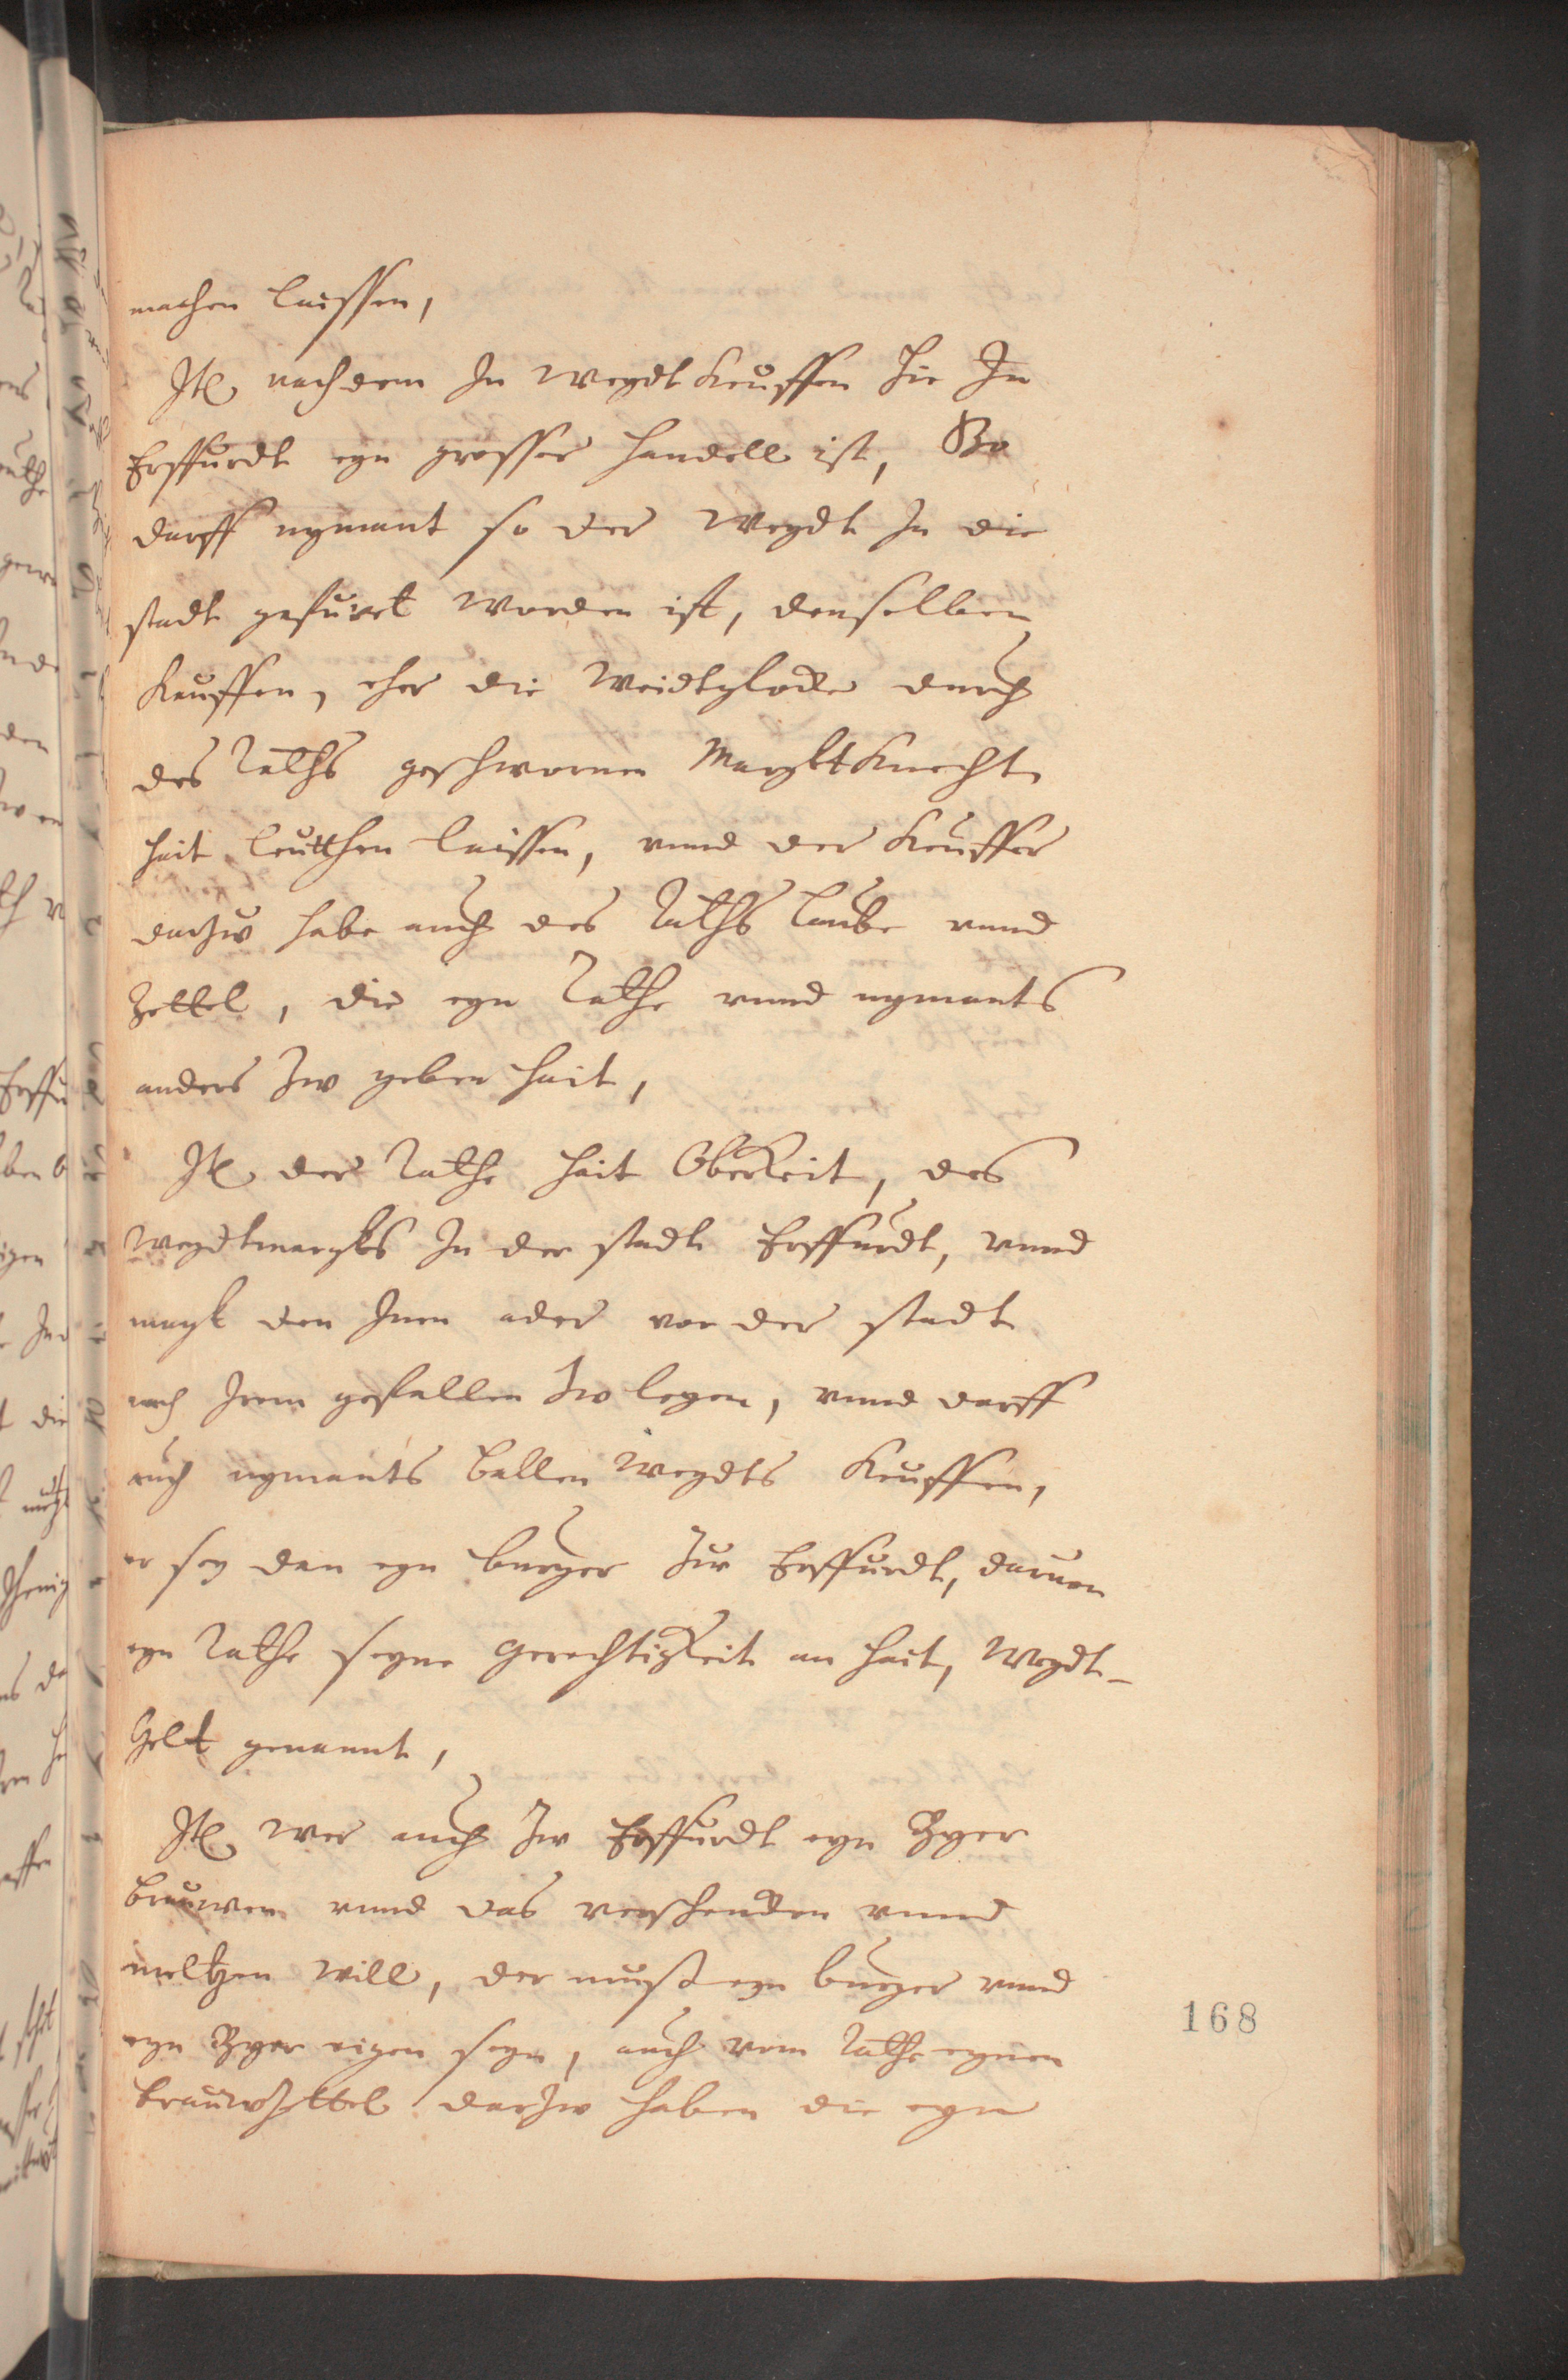 machen laissen,
Itē nachdem In Weydt Keuffen hie In
Erffurdt eyn grosser handell ist, So
darff nymant so der Weydt In die
stadt gefurt worden ist, denselben
Kauffen, eher die Weidtglocke durch
des Raths geschwornen Margkt Knecht
hait leutthen laissen, vnnd der Keuffer
darzw habe auch des Raths laube vnnd
Zettel, die eyn Rathe vnnd nymants
anders Zw geben hait,
Itē der Rathe hait Oberkeit, des
Weydtmargks In der stadt Erffurdt, vnnd
magk den Inen ader vor der stadt
nach Irem gefallen Zw legen, vnnd darff
auch nymants ballen Weydts Keuffen,
er sey dan eyn burger Zw Erffurdt, daruon
eyn Rathe seyne gerechtigkeit an hait, Weydt-
Gelt genannt,
Itē wer auch Zw Erffurdt eyn Byer
brauwen vnnd das verschencken vnnd
meltzen will, der muß eyn burger vnnd
eyn Byer eigen seyn, auch vom Rathe eynen
brauwzettel darzw haben die eyn
168